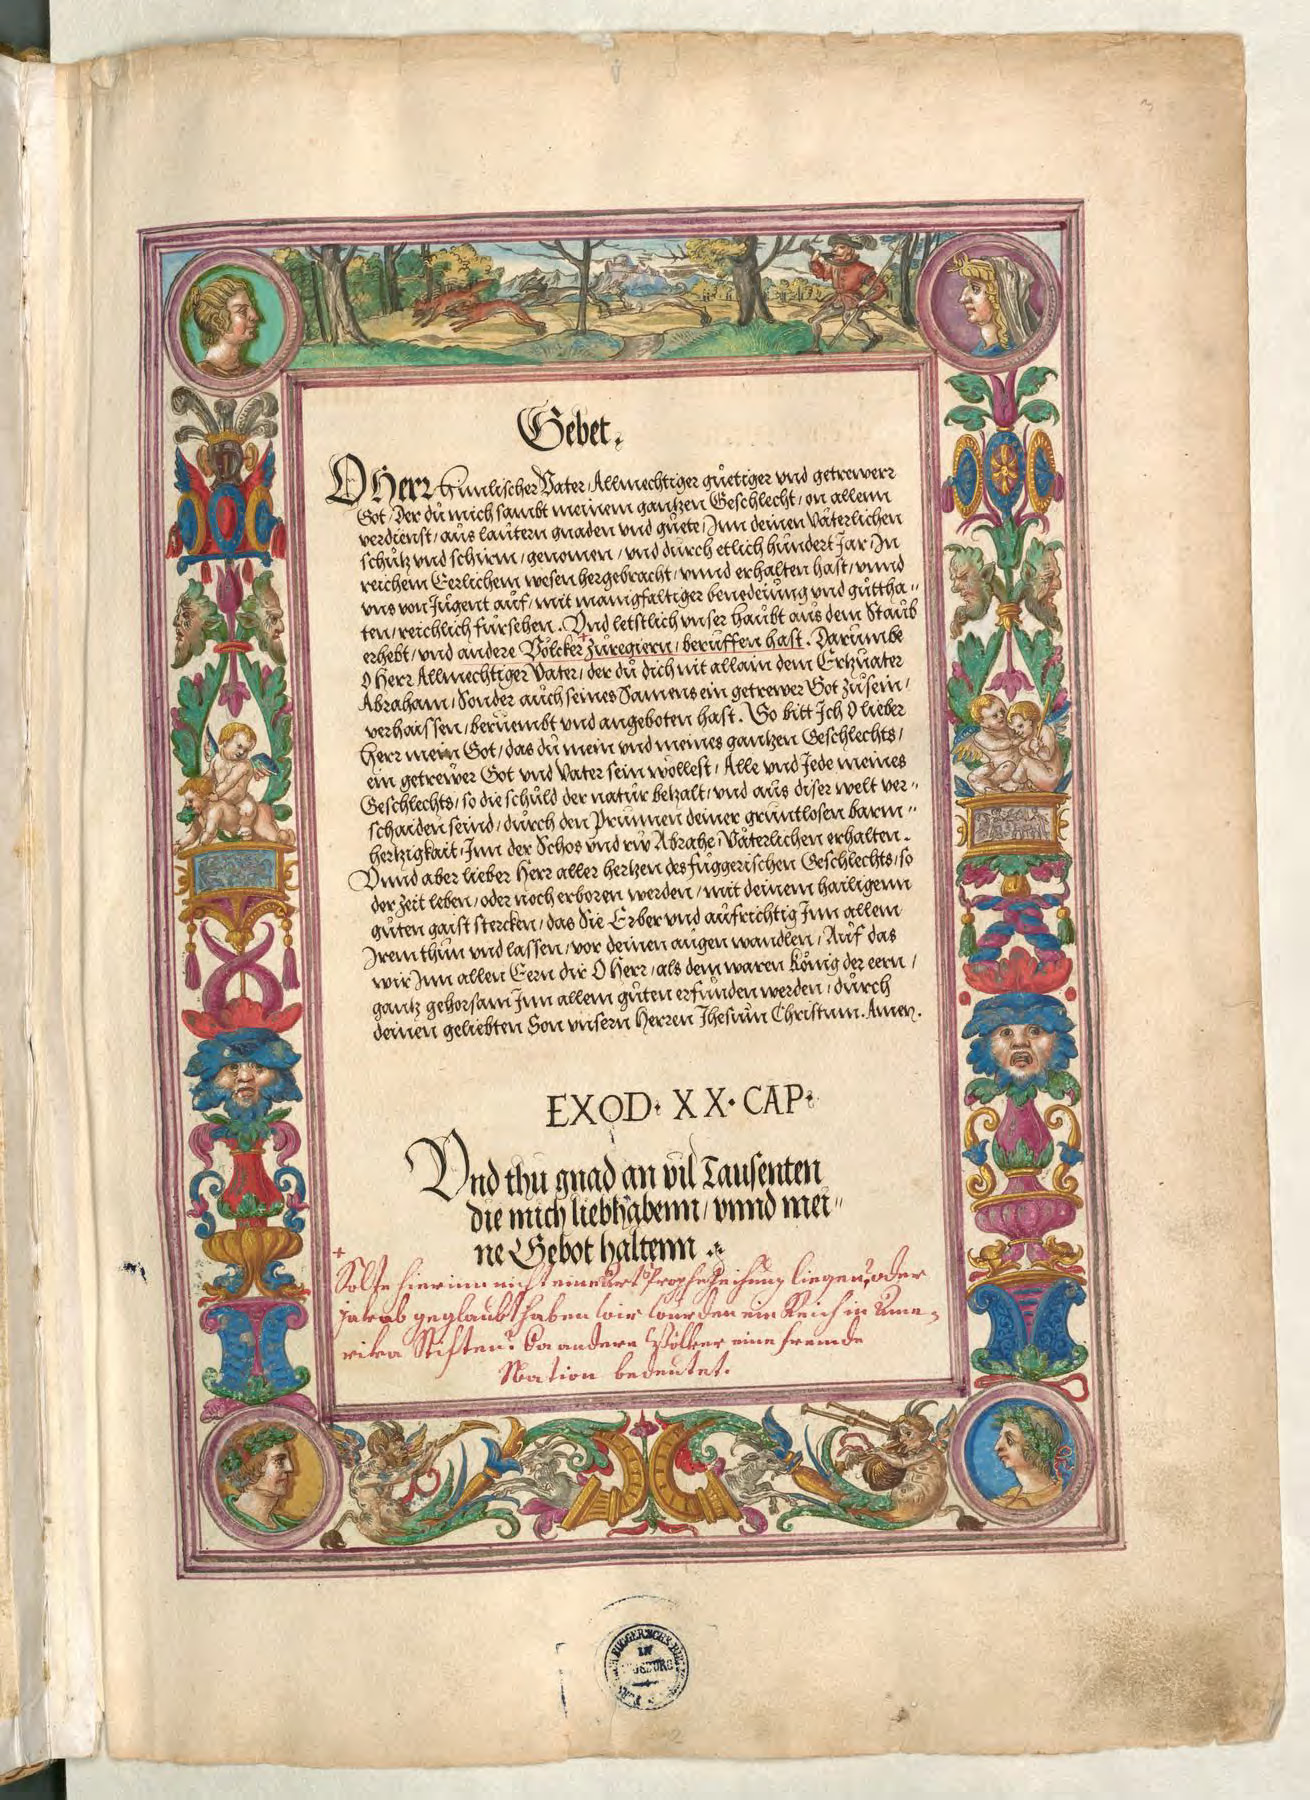 Gebet.
O Herr Himlischer Vater / Allmechtiger güetiger vnd getrewerr
Got / Der du mich sambt meinem gantzen Geschlecht / on allenn
verdienst / aus lautern gnaden vnd güete / Inn deinen Väterlichen
schutz vnd schirm / genomen / vnd durch etlich hundert Jar / In
reichem Eerlichem wesen hergebracht / vnnd erhalten hast / vnnd
vns von Jugent auf / mit manigfaltiger benedeiung vnd guttha=
ten / reichlich fürsehen. Vnd letstlich vnser haubt aus dem Staub
erhebt / vnd andere Völcker zuregiern / beruffen hast. Darumbe
O Herr Allmechtiger Vater / der du dich nit allain dem Ertzuater
Abraham / Sonder auch seines Samens ein getrewer Got zusein /
verhaissen / beruembt vnd angeboten hast. So bitt Ich O lieber
Herr mein Got / das du mein vnd meines gantzen Geschlechts /
ein getrewer Got vnd Vater sein wöllest / Alle vnd Jede meines
Geschlechts / so die schuld der natur betzalt / vnd aus diser welt ver=
schaiden seind / durch den Prunnen deiner gruntlosen barm=
hertzigkait / Inn der Schos vnd rüw Abrahe / Väterlichen erhalten.
Vnnd aber lieber Herr aller hertzen des fuggerischen Geschlechts / so
der zeit leben / oder noch erboren werden / mit deinem hailigenn
guten gaist stercken / das Sie Erber vnd aufrichtig Inn allem
Irem thun vnd lassen / vor deinen augen wandlen / Auf das
wir Inn allen Eern dir O Herr / als dem waren König der eern /
gantz gehorsam Inn allem guten erfunden werden / durch
deinen geliebten Son vnsern Herren Jhesum Christum. Amen.
EXOD. XX. CAP.
Vnd thu gnad an vil Tausenten
die mich liebhabenn / vnnd mei=
ne Gebot haltenn.
+ Solte hierinn nicht eine Art Prophezeihung liegen? oder
Jakob geglaubt haben wir würden ein Reich in Ame=
rika Stiften? Da andere Völker eine fremde
Nation bedeutet.
IN